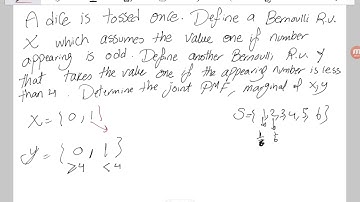 A dice is tossed once. Define a Bernoulli R.V.
X which assumes the value one if number
appearing is odd. Define another Bernoulli R.V. Y
that takes the value one if the appearing number is less
than 4. Determine the joint PMF, marginal of x,y
X = {0, 1}
S={1,2,3,4,5,6}
1/6 1/6
Y = {0, 1}
≥4 <4